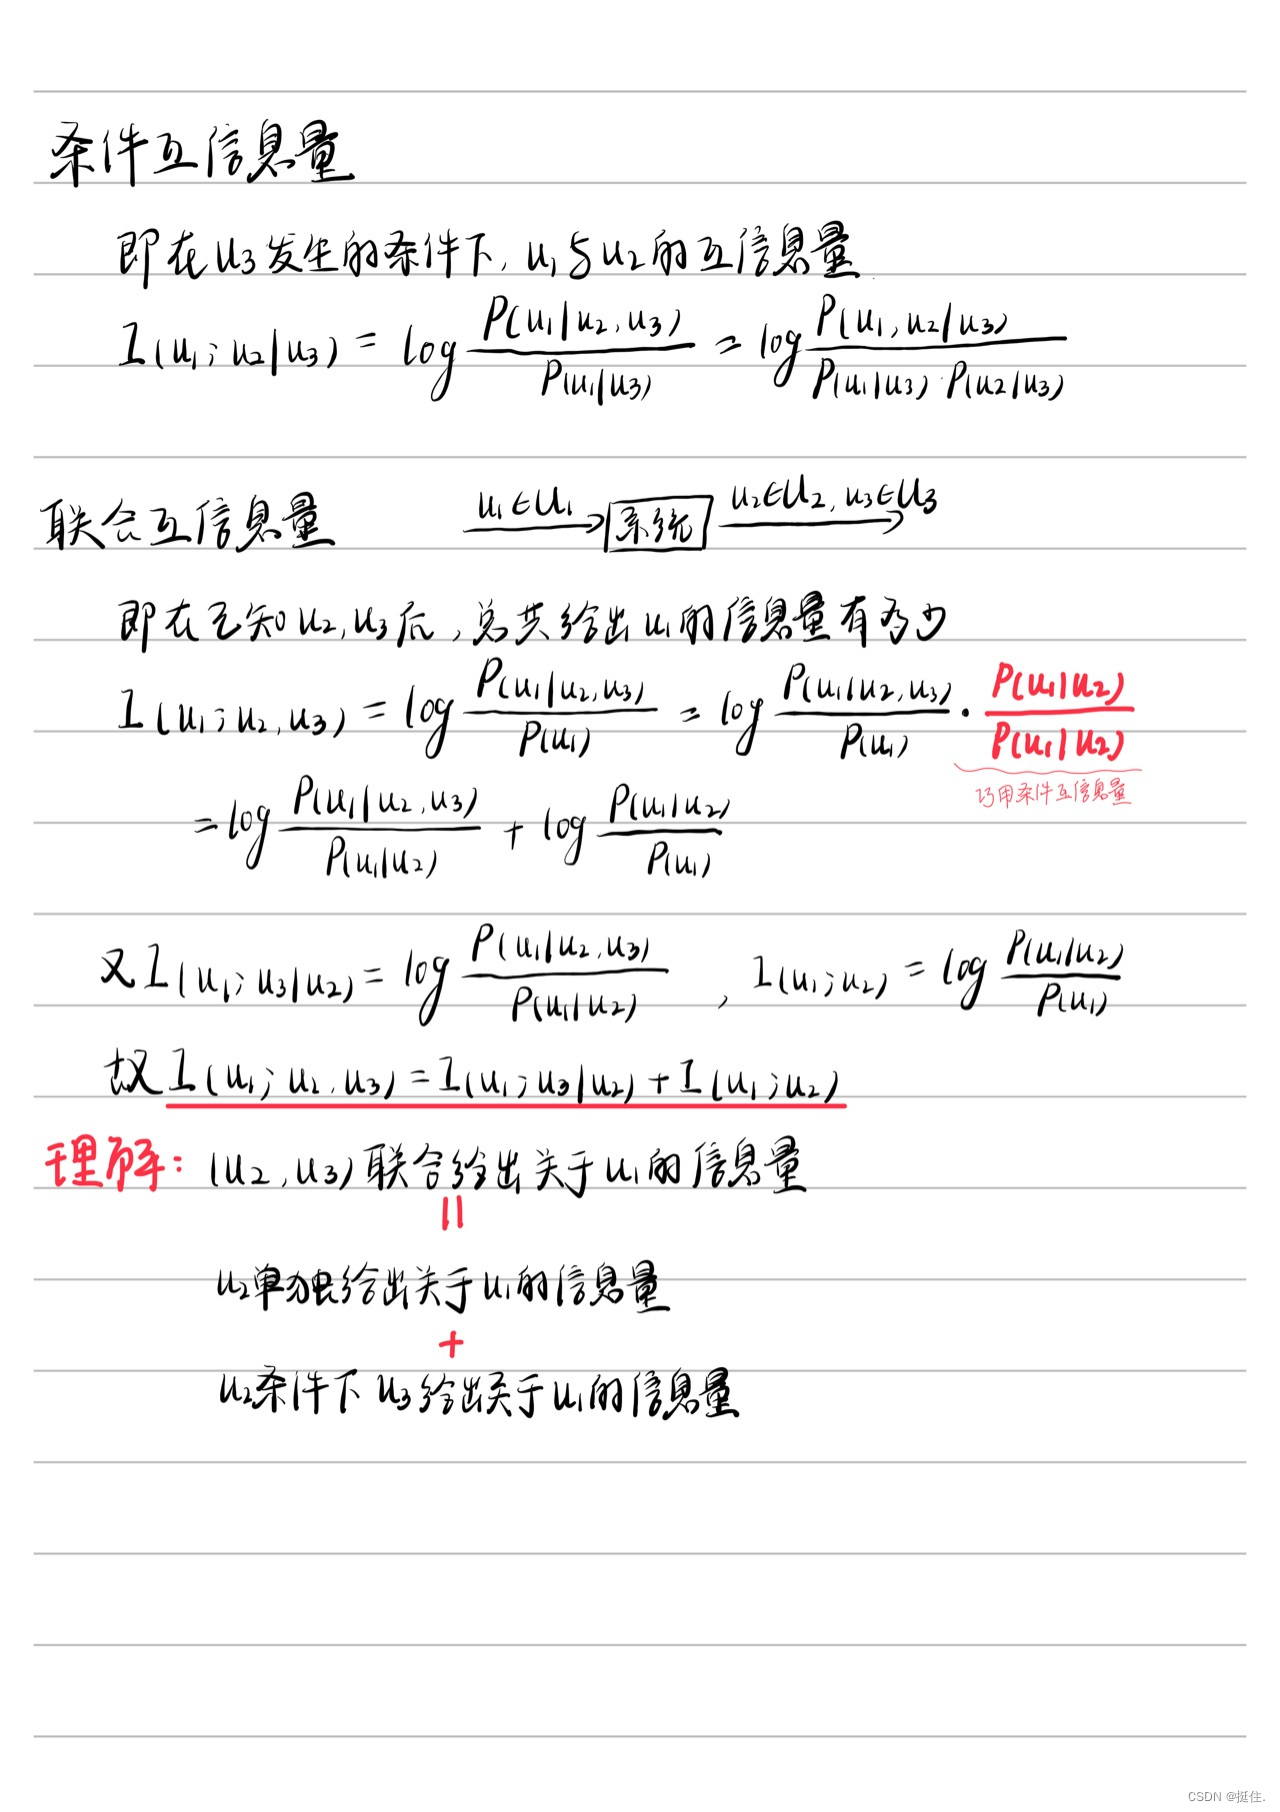 条件互信息量
即在u₃发生的条件下,u₁与u₂的互信息量
I(u₁;u₂|u₃) = log P(u₁|u₂,u₃)/P(u₁|u₃) = log P(u₁,u₂|u₃)/P(u₁|u₃)·P(u₂|u₃)
联合互信息量 u₁∈U₁ 系统 u₂∈U₂,u₃∈U₃
即在已知u₂,u₃后,总共给出u₁的信息量有多少
I(u₁;u₂,u₃) = log P(u₁|u₂,u₃)/P(u₁) = log P(u₁|u₂,u₃)/P(u₁) · P(u₁|u₂)/P(u₁|u₂)
巧用条件互信息量
= log P(u₁|u₂,u₃)/P(u₁|u₂) + log P(u₁|u₂)/P(u₁)
又I(u₁;u₃|u₂) = log P(u₁|u₂,u₃)/P(u₁|u₂) , I(u₁;u₂) = log P(u₁|u₂)/P(u₁)
故I(u₁;u₂,u₃) = I(u₁;u₃|u₂) + I(u₁;u₂)
理解: (u₂,u₃)联合给出关于u₁的信息量
=
u₂单独给出关于u₁的信息量
+
u₂条件下u₃给出关于u₁的信息量
CSDN @挺住.